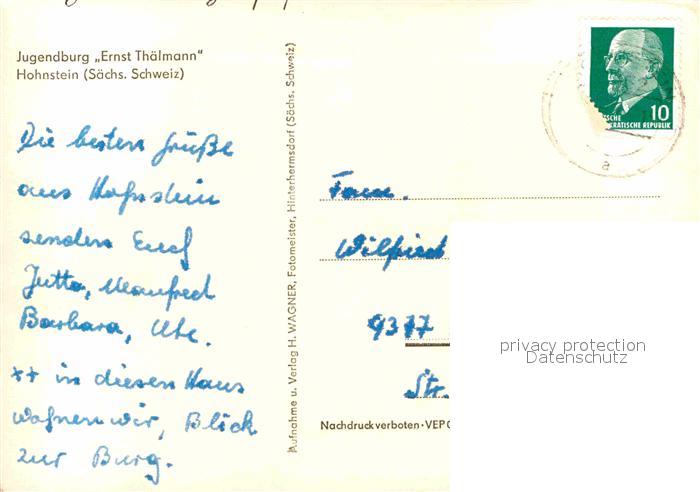 Jugendburg „Ernst Thälmann“
Hohnstein (Sächs. Schweiz)
Die besten Grüße
aus Hohnstein
senden Euch
Jutta, Manfred
Barbara, Ute.
++ in diesen Haus
wohnen wir, Blick
zur Burg.
Aufnahme u. Verlag H. WAGNER, Fotomeister, Hinterhermsdorf (Sächs. Schweiz)
10
DEMOKRATISCHE REPUBLIK
a
Fam.
Wilfried
9377
Str.
Nachdruck verboten · VEP
privacy protection
Datenschutz